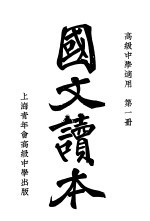 高級中學適用 第一冊
國文讀本
上海青年會高級中學出版